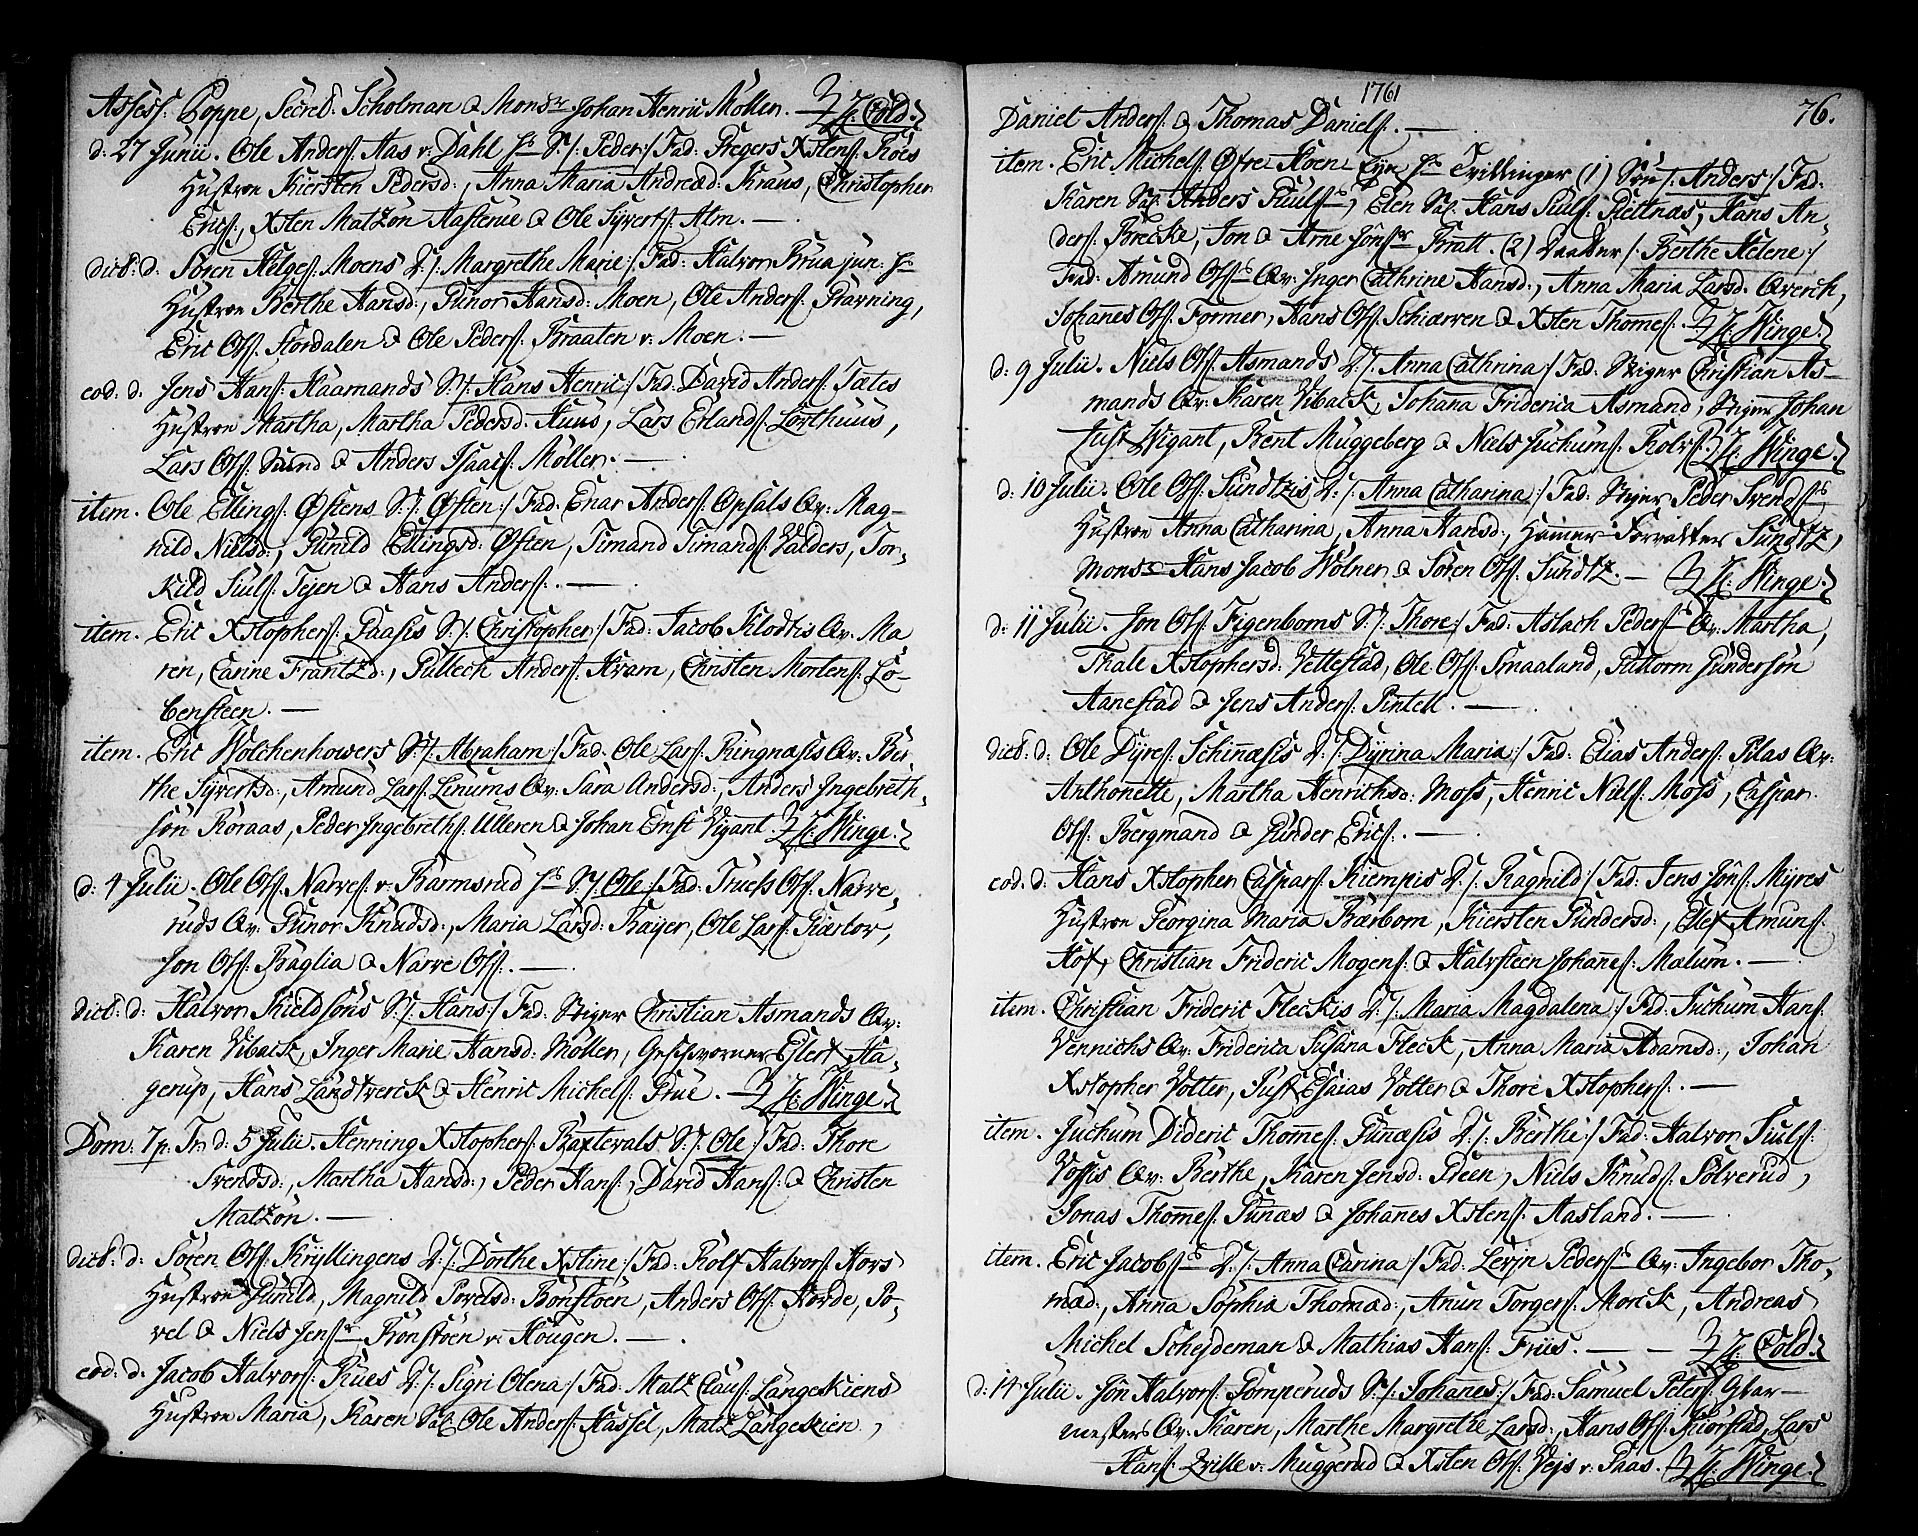 Assess: Poppe, Secret: Scholman & Monsr Johan Henric Möller. H: Cold.
d: 27 Junii. Ole Anders: Aas v: Dahl hs S: /: Peder :/ Fad: Gregers Xstens: Foës
Hustroe Kiersten Pedersd:, Anna Maria Andreæd: Kraus, Christopher
Erics:, Xsten Matzøn Aasterüe & Ole Syverts: Alm. —
dict: d: Sören Helges: Moens D: /: Margrethe Marie :/ Fad: Halvor Brua jun: hs
Hustroe Berthe Hansd:, Gunor Hansd: Moen, Ole Anders: Pravning,
Eric Ols: Stordalen & Ole Peders: Braaten v: Moen. —
eod: d: Jens Hans: Haamands S: /: Hans Henric :/ Fad: David Anders: Tætes
Hustroe Martha, Martha Pedersd: Huus, Lars Erlands: Lorthuus,
Lars Ols: Sund & Anders Isaacs: Möller. —
item. Ole Ellings: Østens S: /: Østen :/ Fad: Enar Anders: Opsals Qv: Mag-
nild Nielsd:, Gunild Ellingsd: Østen, Timand Timands: Valders, Tor-
kild Siuls: Tejen & Hans Anders: —
item. Eric Xstophers: Gaasis S: /: Christopher :/ Fad: Jacob Klodtis Qv: Ma
ren, Carine Frantzd:, Palleck Anders: Kvam, Christen Mortens: Lo-
bensteen. —
item. Eric Wolchenhowers S: /: Abraham :/ Fad: Ole Lars: Ringnæsis Qv: Bir-
the Syvertsd:, Amund Lars: Linums Qv: Sara Andersd:, Anders Ingebreth-
søn Roraas, Peder Ingebreths: Ulleren & Johan Ernst Vigant. H: Winge.
d: 4 Julii. Ole Ols: Narves: v: Barmsrud hs S: /: Ole :/ Fad: Truels Ols: Narve-
ruds Qv: Gunor Knudsd:, Maria Larsd: Bayer, Ole Lars: Kiærtor,
Jon Ols: Baglia & Narve Ols: —
dict: d: Halvor Kieldsøns S: /: Hans :/ Fad: Stiger Christian Asmands Qv:
Karen Viback, Inger Marie Hansd: Möller, Geschworner Eslert Ha-
gerup, Hans Landtverck & Henric Michels: Grüe. — H: Winge.
Dom: 7 p: Tr: d: 5 Julii. Henning Xstophers: Baxtevals S: /: Ole :/ Fad: Thore
Svendsd:, Martha Hansd:, Peder Hans:, David Hans: & Christen
Matzøn. —
dict: d: Sören Ols: Kryllingens D: /: Dorthe Xstine :/ Fad: Rolf Halvors: Hors
Hustroe Gunild, Magnild Povelsd: Bonstøen, Anders Ols: Horde, Po-
vel & Niels Jenssr Bonstøen v: Haugen. —
eod: d: Jacob Halvors: Rües D: /: Sigri Olena :/ Fad: Matz Claus: Langeskiens
Hustroe Maria, Karen Sal: Ole Anders: Hassel, Matz Langeskien,
1761
76.
Daniel Anders: & Thomas Daniels: —
item. Eric Michels: Øfre Hoen Eyn hs Tvillinger (1) Søn /: Anders :/ Fad:
Karen Sal: Anders Siuls:, Elen Sal: Hans Siuls: Gjettnæs, Hans An-
ders: Brecke, Jon & Arne Jönssr Bratt. (2) Daatter /: Berthe Helene :/
Fad: Amund Ols: Qv: Inger Cathrine Hansd:, Anna Maria Larsd: Qverck,
Johanes Ols: Former, Hans Ols: Schiærren & Xsten Thomes: H: Winge.
d: 9 Julii. Niels Ols: Asmands D: /: Anna Cathrina :/ Fad: Stiger Christian As-
mands Qv: Karen Viback, Johana Friderica Asmand, Stiger Johan
Just Wigant, Bent Müggeberg & Niels Juchums: Kolv: H: Winge.
d: 10 Julii. Ole Ols: Sundtzis D: /: Anna Catharina :/ Fad: Stiger Peder Svends:
Hustroe Anna Catharina, Anna Hansd:, Hamer Forvalter Sundtz,
Monsr Hans Jacob Wolner & Sören Ols: Sundtz. — H: Winge.
d: 11 Julii. Jon Ols: Figenboms S: /: Thore :/ Fad: Aslach Peders: Qv: Martha,
Thale Xstophersd: Vettestad, Ole Ols: Smaaland, Guttorm Gundersøn
Aanestad & Jens Anders: Pintell. —
dict: d: Ole Dyres: Schinæsis D: /: Dyrina Maria :/ Fad: Elias Anders: Pilas Qv:
Anthonette, Martha Henrichsd: Moss, Henric Niels: Moss, Caspar
Ols: Bergmand & Gunder Erics: —
eod: d: Hans Xstopher Caspars: Kiempis D: /: Ragnild :/ Fad: Jens Jöns: Myres
Hustroe Georgina Maria Barbom, Kiersten Gundersd:, Elef Amuns:
Hof, Christian Frideric Mogens: & Halvsteen Johanes: Malum. —
item. Christian Frideric Fleckis D: /: Maria Magdalena :/ Fad: Juchum Hans:
Vennichs Qv: Friderica Susana Fleck, Anna Maria Adamsd:, Johan
Xstopher Votter, Just Esaias Votter & Thore Xstophers: —
item. Juchum Dideric Thomes: Gunæsis D: /: Berthe :/ Fad: Halvor Siuls:
Vossis Qv: Berthe, Karen Jensd: Green, Niels Knuds: Sölverud,
Jonas Thomes: Gunæs & Johanes Xstens: Aasland. —
item. Eric Jacobs: D: /: Anna Carina :/ Fad: Levin Peders: Qv: Ingebor Tho-
mæd:, Anna Sophia Thomæd:, Anun Torgers: Morck, Andreas
Michel Schejdeman & Mathias Hans: Friis. — — H: Cold.
d: 14 Julii. Jön Halvors: Gomperuds S: /: Johanes :/ Fad: Samuel Peters: Gvar-
mesters Qv: Karen, Marthe Margrethe Larsd:, Hans Ols: Kiorstad, Lars
Hans: Lville v: Muggerud & Xsten Ols: Vejs v: Gaas. H: Winge.